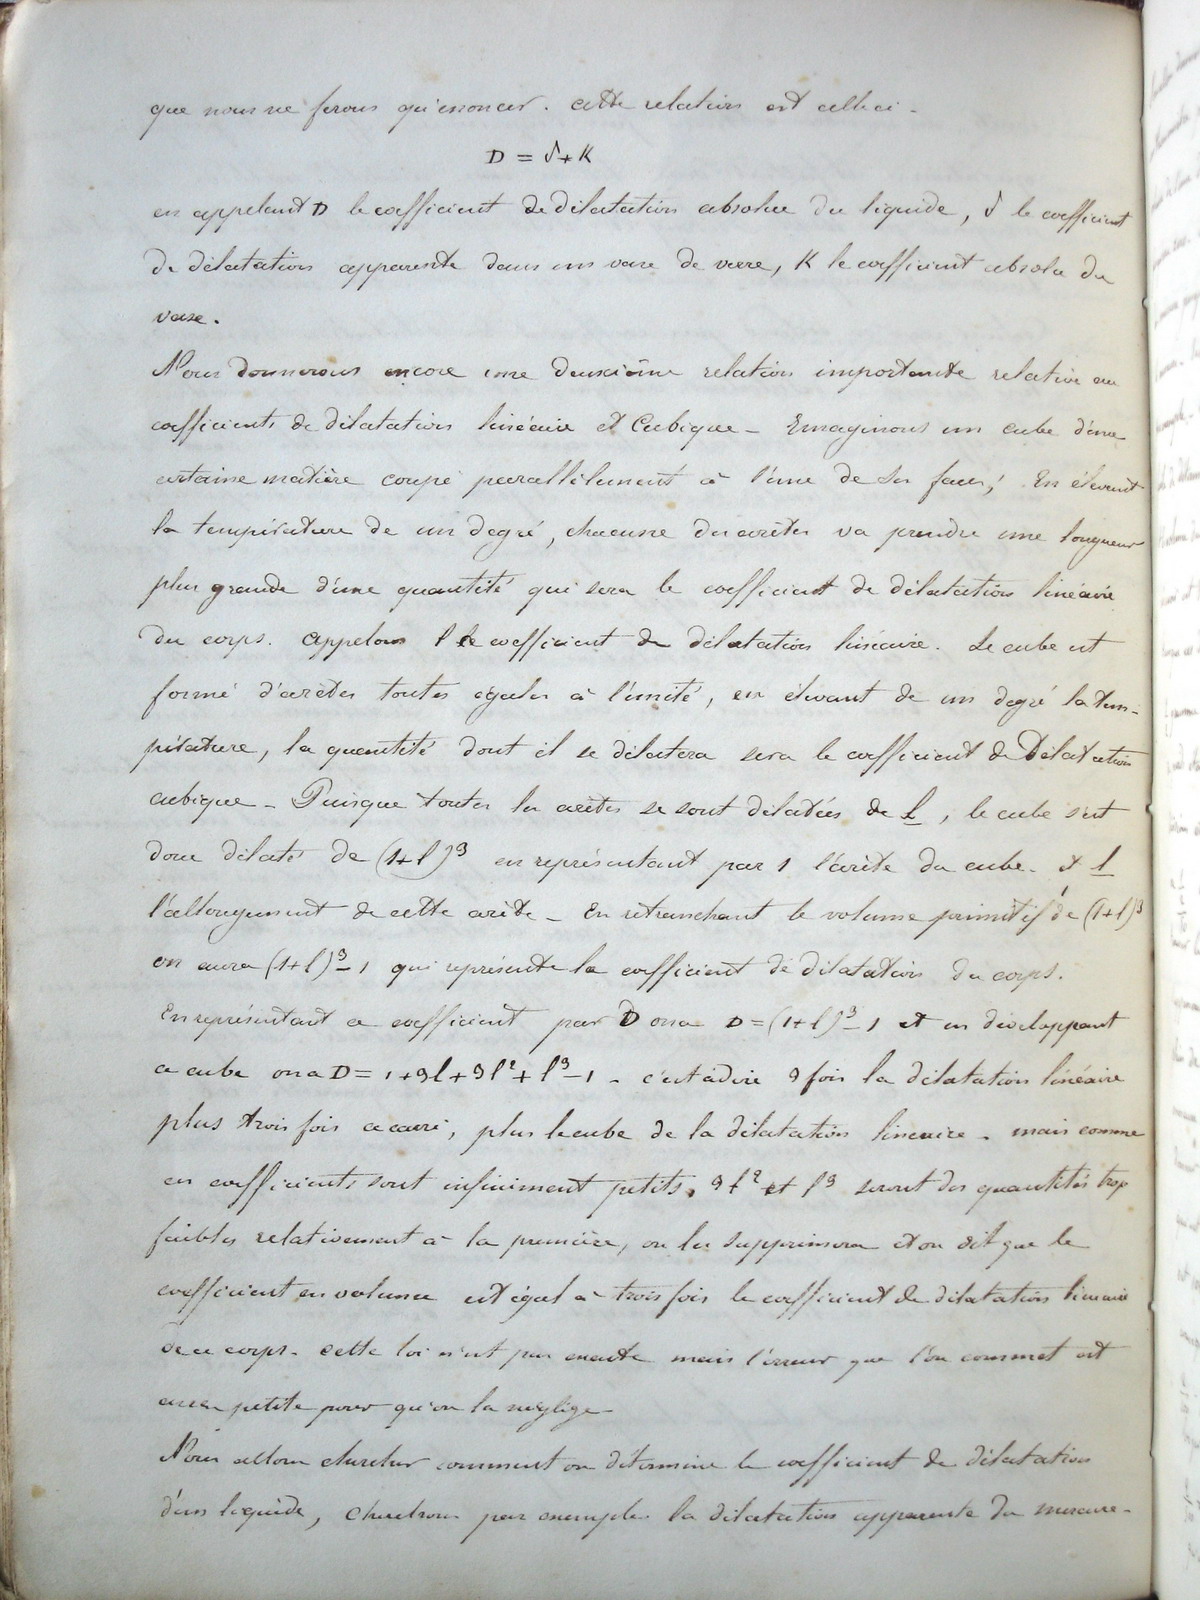 que nous ne ferons qu'énoncer. Cette relation est celle ci -
D = δ + K
en appelant D le coefficient de dilatation absolue du liquide, δ le coefficient
de dilatation apparente dans un vase de verre, K le coefficient absolu du
vase.
Nous donnerons encore une deuxième relation importante relative au
coefficients de dilatation linéaire et Cubique - Imaginons un cube d'une
certaine matière coupé parallèlement à l'une de ses faces; En élevant
la température de un degré, chacune des arêtes va prendre une longueur
plus grande d'une quantité qui sera le coefficient de dilatation linéaire
du corps. Appelons l le coefficient de dilatation linéaire. Le cube est
formé d'arêtes toutes égales à l'unité, en élevant de un degré la tem-
pérature, la quantité dont il se dilatera sera le coefficient de Dilatation
cubique - Puisque toutes les arêtes se sont dilatées de l, le cube s'est
donc dilaté de (1+l)³ en représentant par 1 l'arête du cube. et l
l'allongement de cette arête - En retranchant le volume primitif de (1+l)³
on aura (1+l)³-1 qui représente le coefficient de dilatation du corps.
En représentant ce coefficient par D on a D=(1+l)³-1 et en développant
ce cube on a D = 1+3l+3l²+l³-1 - c'est à dire 3 fois la dilatation linéaire
plus trois fois ce carré, plus le cube de la dilatation lineaire - mais comme
ces coefficients sont infiniment petits, 3l² et l³ seront des quantités trop
faibles relativement à la première, on les supprimera et on dit que le
coefficient en volume est égal à trois fois le coefficient de dilatation lineaire
de ce corps - cette loi n'est pas exacte mais l'erreur que l'on commet est
assez petite pour qu'on la néglige -
Nous allons chercher comment on détermine le coefficient de dilatation
d'un liquide, Cherchons par exemple la dilatation apparente du mercure -